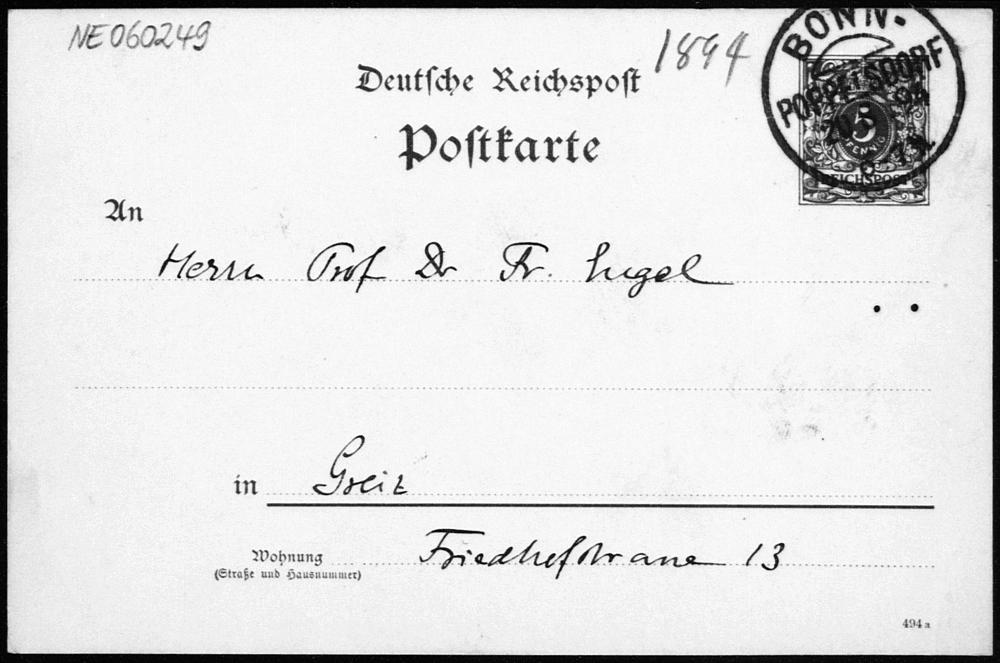 NE060249
1894
Deutsche Reichspost
Postkarte
BONN.
POPPELSDORF
5
PFENNIG
REICHSPOST
An
Herrn Prof Dr Fr. Engel
in Greiz
Wohnung Friedhofstrasse 13
(Straße und Hausnummer)
494a